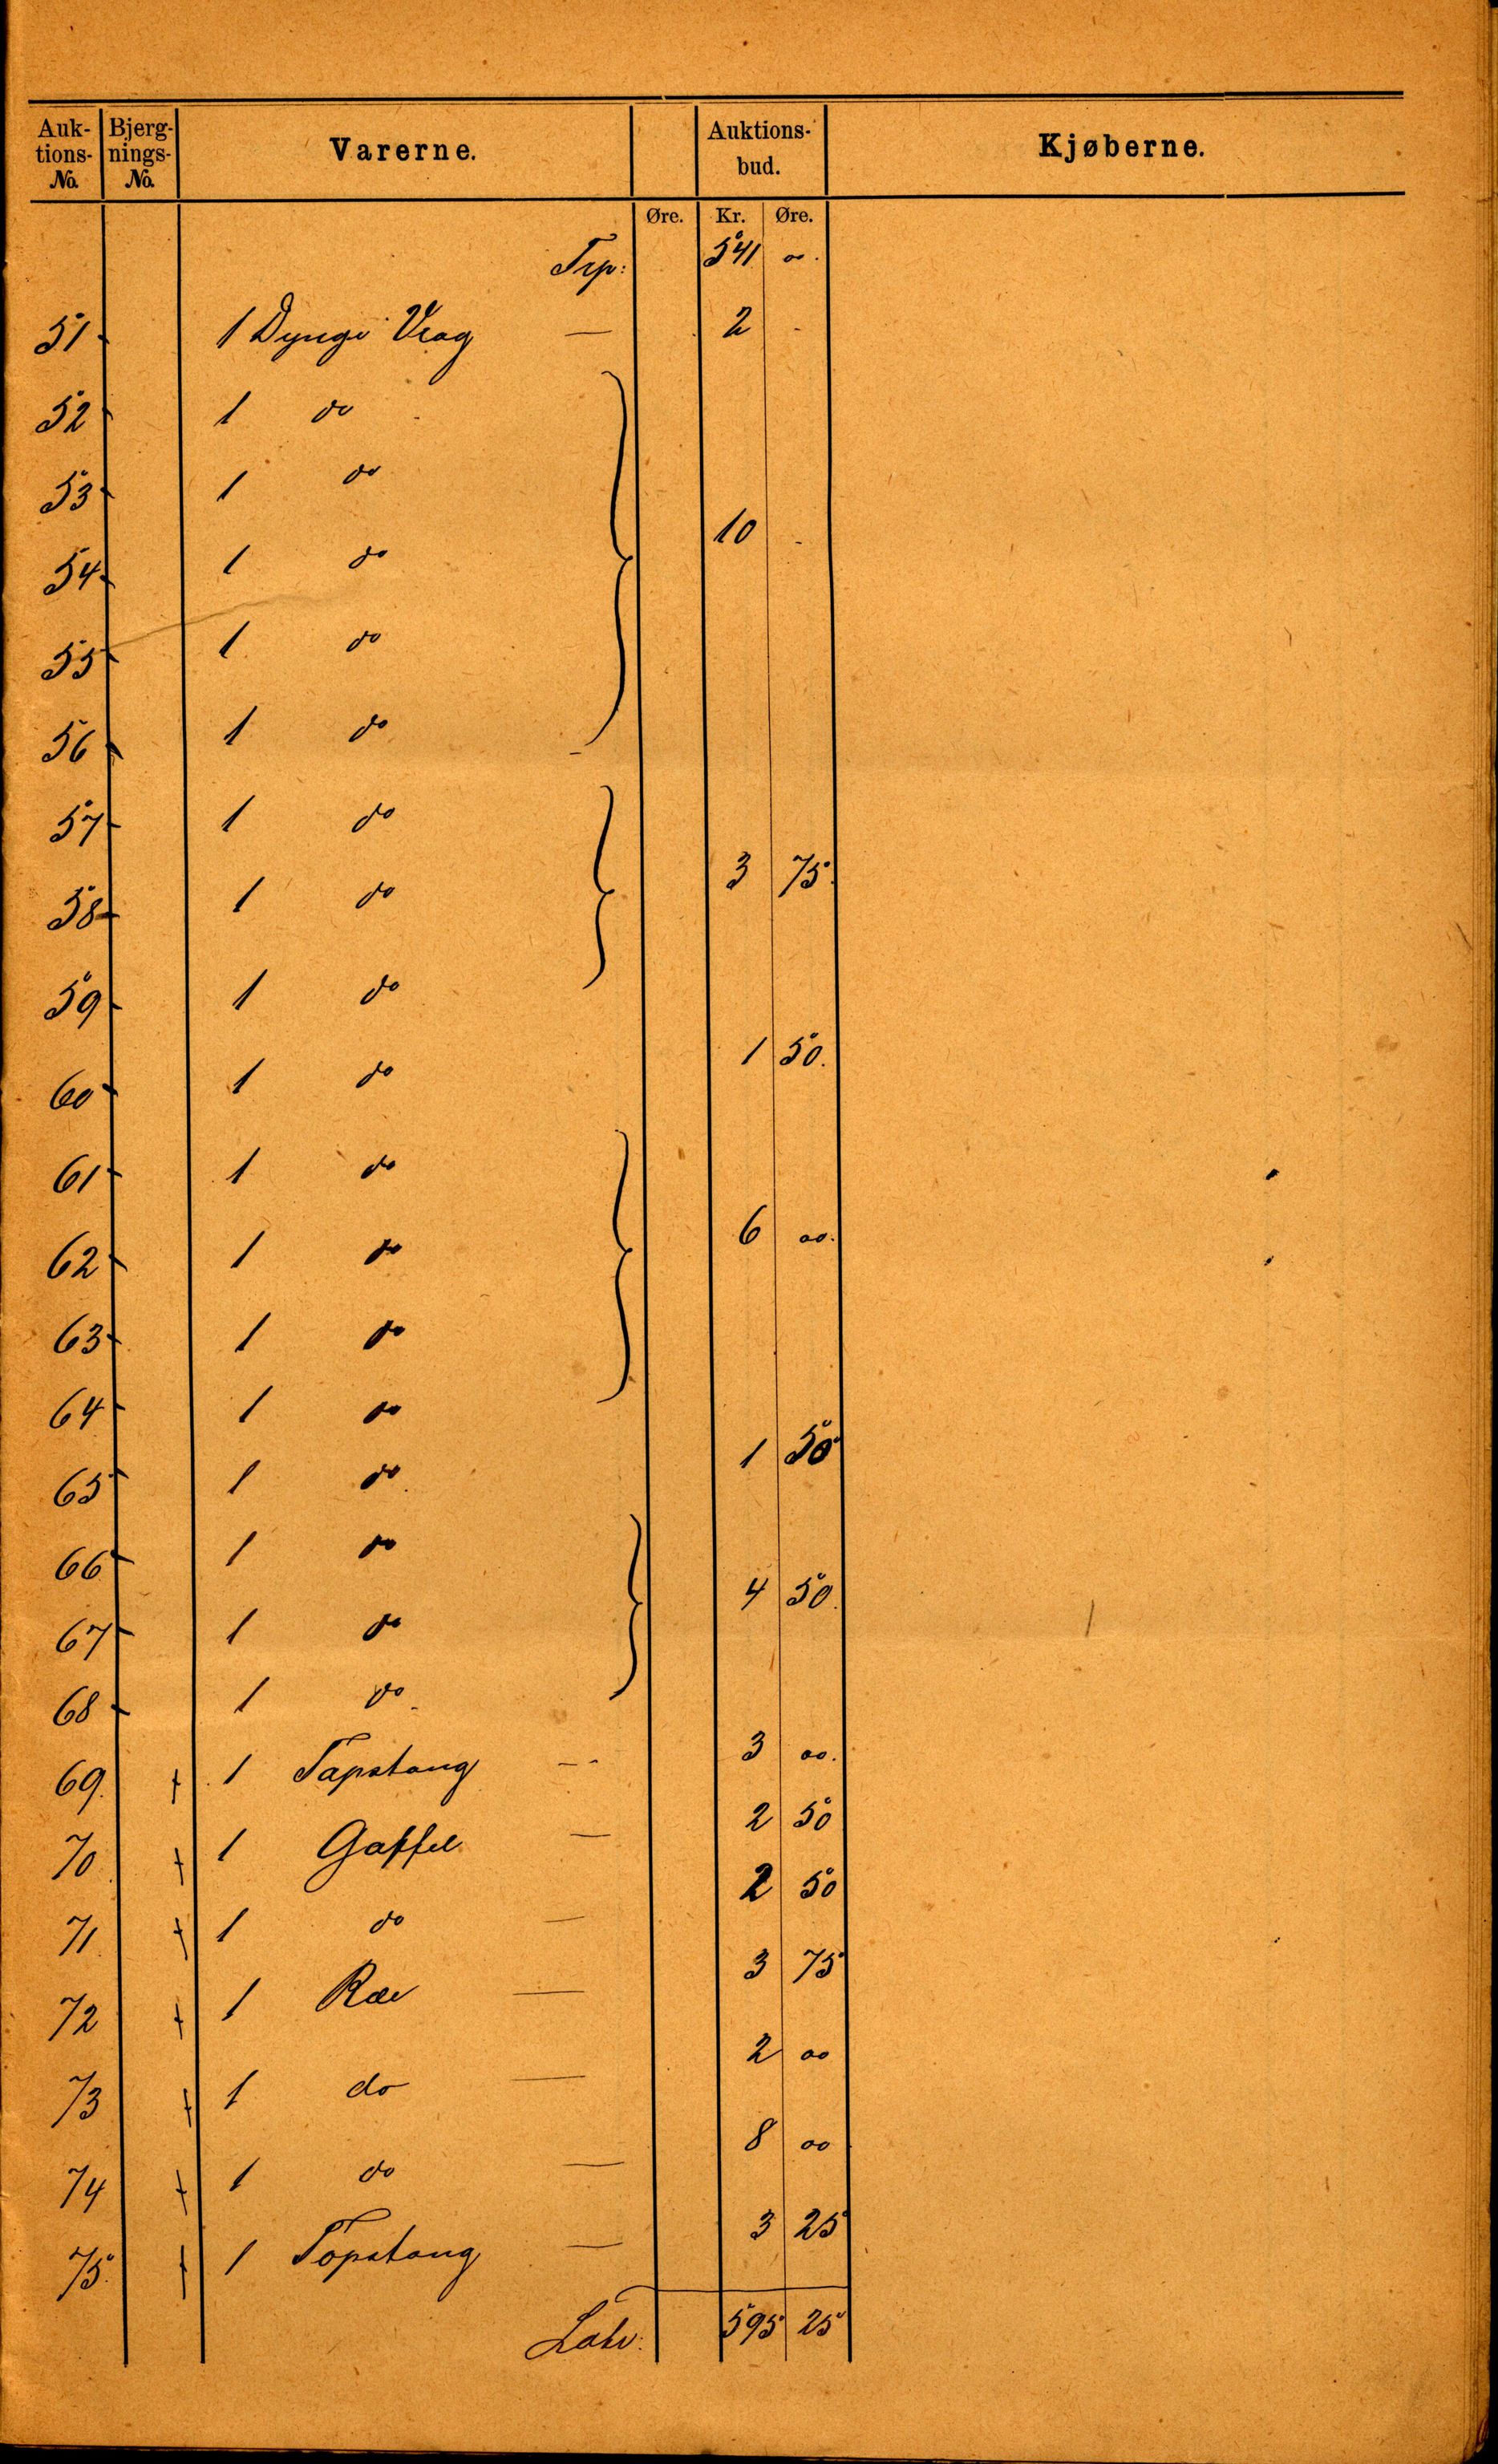 Auk-tions-No. Bjerg-nings-No. Varerne. Auktions-bud. Kjøberne.
Øre. Kr. Øre.
Trp: 541 00.
51 1 Dynge Vrag — 2 -
52 1 do
53 1 do
10 -
54 1 do
55 1 do
56 1 do
57 1 do
3 75.
58 1 do
59 1 do
1 50.
60 1 do
61 1 do
6 00.
62 1 do
63 1 do
64 1 do
1 50
65 1 do
66 1 do
4 50.
67 1 do
68 1 do
69. + 1 Tapstang — 3 00.
70. + 1 Gaffel — 2 50
71. + 1 do — 2 50
72 + 1 Rae — 3 75
73 + 1 do — 2 00
74 + 1 do — 8 00
75. + 1 Topstang — 3 25
Latr: 595 25